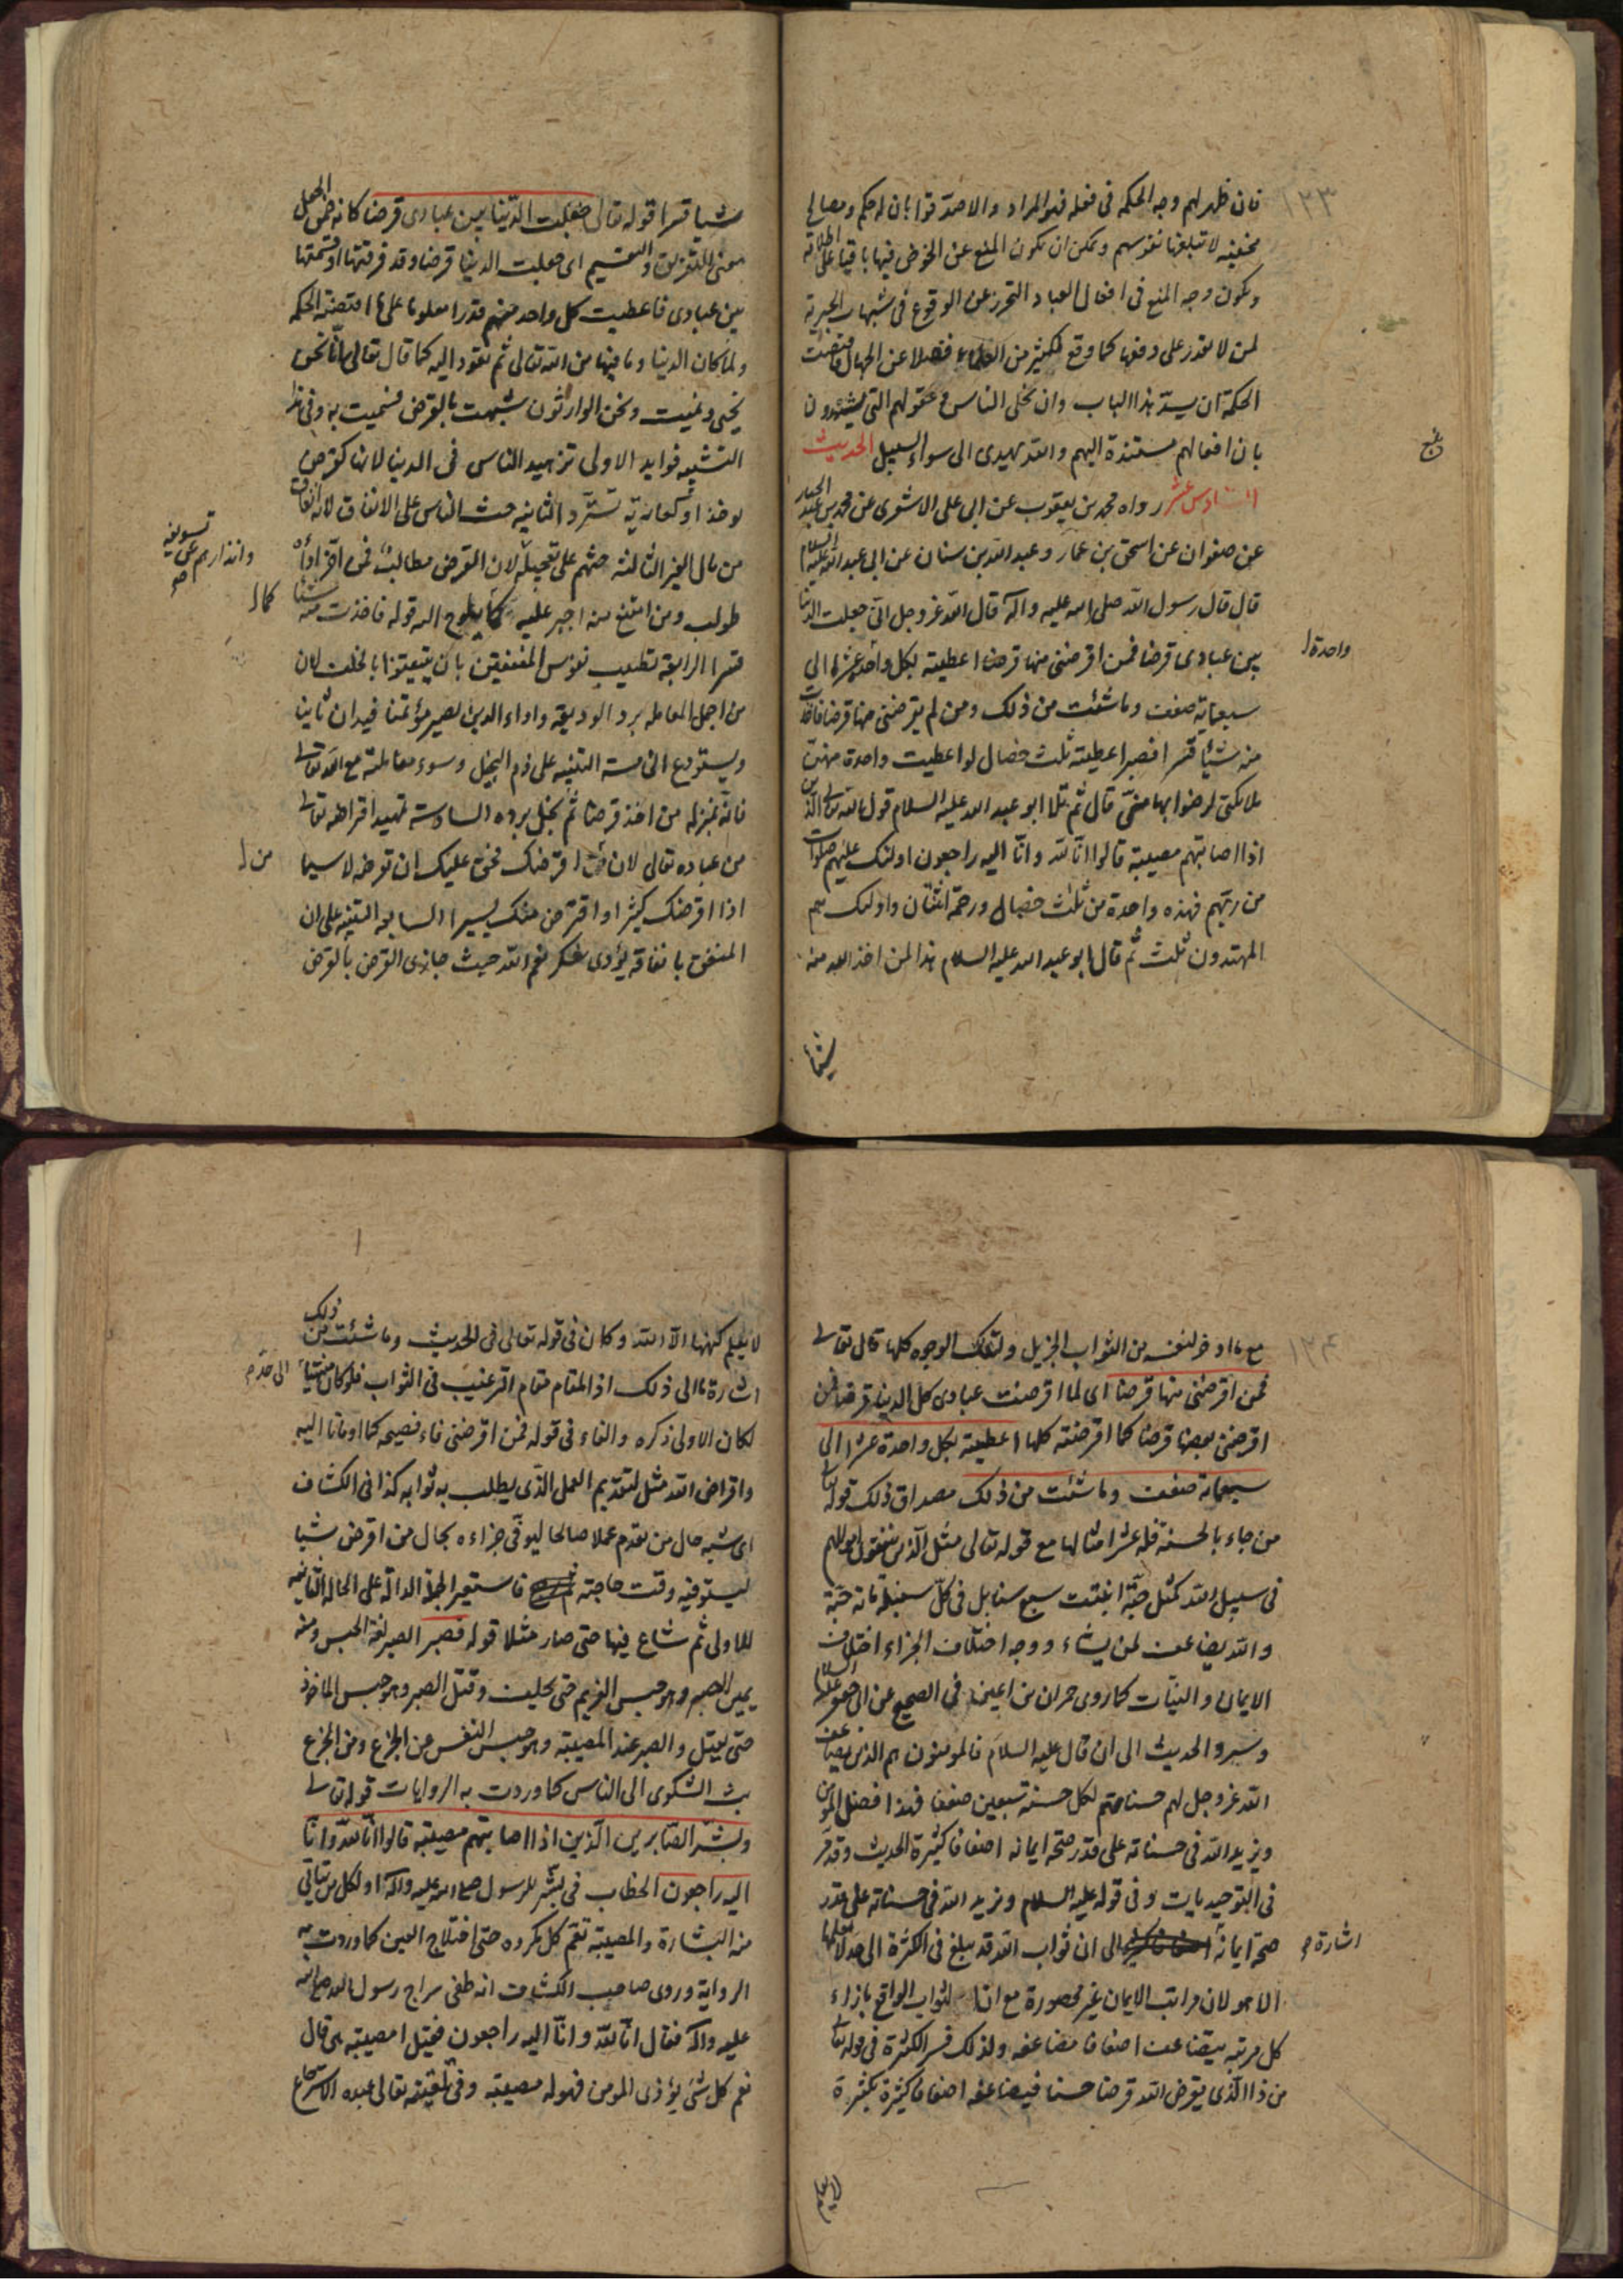 ١٢٣
فان ظهر لهم وجه الحكمه فى فعله فهو المراد والا صدقوا بان له حكم ومصالح
مخفيه لا تبلغها نفوسهم ويمكن ان يكون المنع عن الخوض فيها باقيا على اطلاقه
ويكون وجه المنع فى افعال العباد التحرز عن الوقوع فى شبهات الجبرية
لمن لا يقدر على دفعها كما وقع لكثير من العلماء فضلا عن الجهال فاقتضت
الحكمة ان يسد هذا الباب وان يخلى الناس و عقولهم التى يشهدون
بان افعالهم مستندة اليهم والله يهدى الى سواء السبيل الحديث
السادس عشر رواه محمد بن يعقوب عن ابى على الاشعرى عن محمد بن عبد الجبار
عن صفوان عن اسحق بن عمار وعبد الله بن سنان عن ابى عبد الله عليه السلام
قال قال رسول الله صلى الله عليه وآله قال الله عز وجل انى جعلت الدنيا
بين عبادى قرضا فمن اقرضنى منها قرضا اعطيته بكل واحدة عشرا الى
واحدة
سبعمايه ضعف وما شئت من ذلك ومن لم يقرضنى منها قرضا فاخذت
منه شيئا قسرا فصبر اعطيته ثلث خصال لو اعطيت واحدة منهن
ملائكتى لرضوا بها منى قال ثم تلا ابو عبد الله عليه السلام قول الله تعالى الذين
اذا اصابتهم مصيبة قالوا انا لله وانا اليه راجعون اولئك عليهم صلوات
من ربهم فهذه واحدة من ثلث خصال ورحمة اثنتان واولئك هم
المهتدون ثلث ثم قال ابو عبد الله عليه السلام هذا لمن اخذ الله منه
شيئا
شيئا قسرا قوله تعالى جعلت الدنيا بين عبادى قرضا كانه ضمن الجعل
معنى التفريق والتقسيم اى جعلت الدنيا قرضا وقد فرقتها او قسمتها
بين عبادى فاعطيت كل واحد منهم قدرا معلوما على ما اقتضته الحكمه
ولما كان الدنيا وما فيها من الله تعالى ثم تعود اليه كما قال تعالى انا نحن
نحيى ونميت ونحن الوارثون شبهت بالقرض فسميت به وفى هذا
التشبيه فوايد الاولى تزهيد الناس فى الدنيا لانها كقرض
يوخذ او كعارية تسترد الثانيه حث الناس على الانفاق لانه انفاق
من مال الغير الثالثة حثهم على تعجيله لان القرض مطالب فمن اقر اداه
وانذارهم عن تسويفه
طولب ومن امتنع منه اجبر عليه كما يلوح اليه قوله فاخذت منه شيئا
كما
قسرا الرابعة تطييب نفوس المنفقين بان يتيقنوا بالخلف لان
من اجمل المعامله برد الوديعة واداء الدين يصير مؤتمنا فيدان ثانيا
ويستودع الخامسه التنبيه على ذم البخيل وسوء معاملته مع الله تعالى
فانه بمنزله من اخذ قرضا ثم بخل برده السادسة تمهيد اقتراضه تعالى
من عباده تعالى لان من اقرضك فحق عليك ان تقرضه لا سيما
من
اذا اقرضك كثيرا واقترض منك يسيرا السابعه التنبيه على ان
المنفق بانفاقه يؤدى شكر نعم الله حيث جازى القرض بالقرض
١٢٤
مع ما ادخر لنفسه من الثواب الجزيل ولتلك الوجوه كلها قال تعالى
فمن اقرضنى منها قرضا اى لما اقرضت عبادى كل الدنيا قرضا فمن
اقرضنى بعضها قرضا كما اقرضته كلها اعطيته بكل واحدة عشرا الى
سبعمائة ضعف وما شئت من ذلك مصداق ذلك قوله تعالى
من جاء بالحسنة فله عشر امثالها مع قوله تعالى مثل الذين ينفقون اموالهم
فى سبيل الله كمثل حبة انبتت سبع سنابل فى كل سنبلة مائة حبة
والله يضاعف لمن يشاء ووجه اختلاف الجزاء اختلاف
الايمان والنيات كما روى حمران بن اعين فى الصحيح عن ابى جعفر عليه السلام
وسرد الحديث الى ان قال عليه السلام فالمومنون هم الذين يضاعف
الله عز وجل لهم حسناتهم لكل حسنة سبعين ضعفا فهذا فضل المومن
ويزيد الله فى حسناته على قدر صحة ايمانه اضعافا كثيرة الحديث وقد مر
فى التوحيديات وفى قوله عليه السلام ويزيد الله فى حسناته على قدر
صحة ايمانه الى ان ثواب الله قد يبلغ فى الكثرة الى حد لا يعلمها
اشارة
الا هو لان مراتب الايمان غير محصورة مع ان الثواب الواقع بازاء
كل مرتبه يتضاعف اضعافا مضاعفه ولذلك فسر الكثرة فى قوله تعالى
من ذا الذى يقرض الله قرضا حسنا فيضاعفه اضعافا كثيرة بكثرة
لا يعلم
لا يعلم كنهها الا الله وكان فى قوله تعالى فى الحديث وما شئت من ذلك
اشارة الى ذلك اذ المقام مقام الترغيب فى الثواب فلو كان منتهيا
لكان الاولى ذكره والفاء فى قوله فمن اقرضنى فاء فصيحه كما اومانا اليه
واقراض الله مثل لتقديم العمل الذى يطلب به ثوابه كذا فى الكشاف
اى شبه حال من يقدم عملا صالحا ليوفى جزاءه بحال من اقرض شيئا
ليستوفيه وقت حاجته فاستعير الجملة الدالة على الحاله الثانيه
للاولى ثم شاع فيها حتى صار مثلا قوله فصبر الصبر لغة الحبس ومنه
يمين الصبر وهو حبس الغريم حتى يحلف وقتل الصبر وهو حبس الماخوذ
حتى يقتل والصبر عند المصيبة وهو حبس النفس عن الجزع ومن الجزع
بث الشكوى الى الناس كما وردت به الروايات قوله تعالى
وبشر الصابرين الذين اذا اصابتهم مصيبة قالوا انا لله وانا
اليه راجعون الخطاب فى بشر للرسول صلى الله عليه وآله او لكل من يتاتى
منه البشارة والمصيبة تعم كل مكروه حتى اختلاج العين كما وردت به
الرواية وروى صاحب الكشاف انه طفى سراج رسول الله صلى الله
عليه وآله فقال انا لله وانا اليه راجعون فقيل امصيبة هى قال
نعم كل شئ يؤذى المومن فهو له مصيبة وفى تلقينه تعالى عبده الاسترجاع